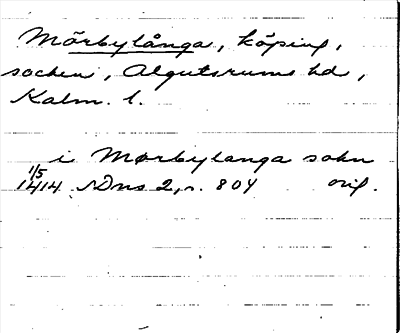 Mörbylånga, köping,
socken, Algutsrums hd,
Kalm. l.
i Mørbylanga sokn
1/5
1414 SDns 2, n. 804 orig.